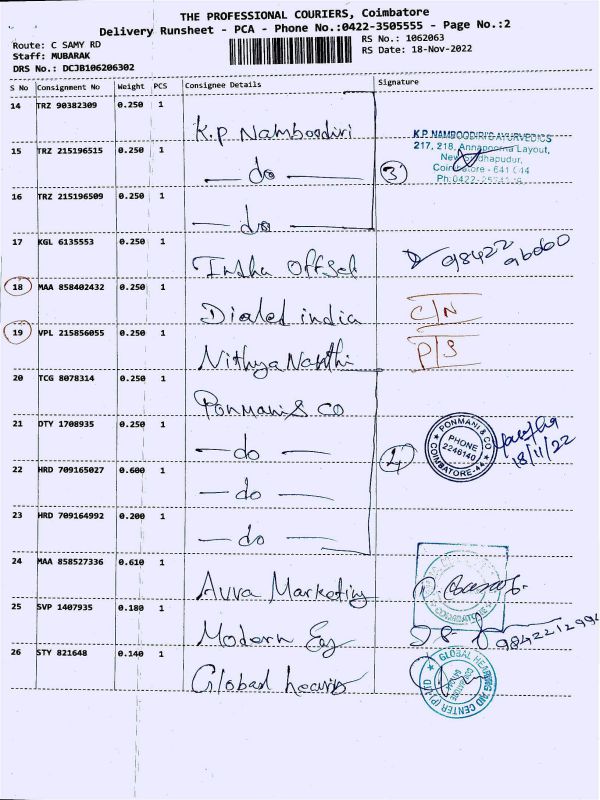 THE PROFESSIONAL COURIERS, Coimbatore
Delivery Runsheet - PCA - Phone No.:0422-3505555 - Page No.:2
Route: C SAMY RD
RS No.: 1062063
Staff: MUBARAK
RS Date: 18-Nov-2022
DRS No.: DCJB106206302
S No Consignment No Weight PCS Consignee Details Signature
14 TRZ 90382309 0.250 1
K.P Namboodiri
K.P.NAMBOODIRI'S AYURVEDICS
217, 218, Annapoorna Layout,
15 TRZ 215196515 0.250 1
— do —
3
Coimbatore - 641 044
16 TRZ 215196509 0.250 1
— do —
17 KGL 6135553 0.250 1
Insha Offset
98422
18 MAA 858402432 0.250 1
Dialed india
C/N
19 VPL 215856055 0.250 1
Nithya Nanthi
P/S
20 TCG 8078314 0.250 1
Ponmani & CO
21 DTY 1708935 0.250 1
— do —
4
PONMANI & CO
PHONE
2246140
COIMBATORE-44
18/11/22
22 HRD 709165027 0.600 1
— do —
23 HRD 709164992 0.200 1
— do —
24 MAA 858527336 0.610 1
Avva Marketing
COIMBATORE
25 SVP 1407935 0.180 1
Modern
9842212994
26 STY 821648 0.140 1
Global hearing
GLOBAL HEARING AID CENTER (P) LTD